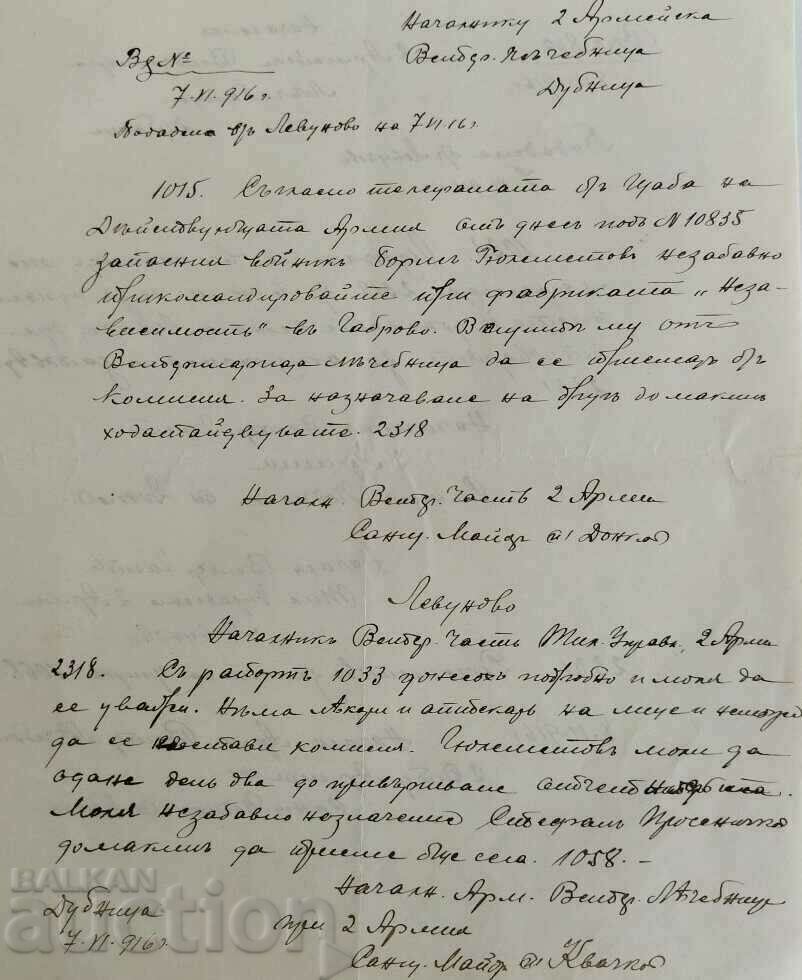 Началнику 2 Армейска
Ветер. Лѣчебница
Дубница
Вд №
7.VI.916 г.
Подадена въ Левуново на 7 VI 16 г.
1015. Съгласно телеграмата въ Щаба на
Дѣйствующата Армия отъ днесь подъ N 10835
запасния войникъ Борисъ Гюлеметовъ незабавно
прикомандировайте при фабриката „Неза-
висимость" въ Габрово. му отъ
Ветеринарната лѣчебница да се въ
комисия. За назначаване на другъ домакинъ
ходатайствувате. 2318
Началн. Ветер. Часть 2 Армия
Сану. Майор п/ Донков
Левуново
Началникъ Ветер. Часть Тил. Управл. 2 Арми
2318. Съ рапортъ 1033 донесохъ подробно и моля да
се уважи. Нѣма лѣкари и аптекарь на лице и
да се състави комисия. Гюлеметовъ моли да
остане день два до привършване
Моля незабавно назначение Стефанъ
домакинъ да приеме още сега. 1058.-
Началн. Арм. Ветер. Лѣчебница
при 2 Армия
Сану. Майор п/ Квачков
Дубница
7.VI.916 г.
BALKAN
auction